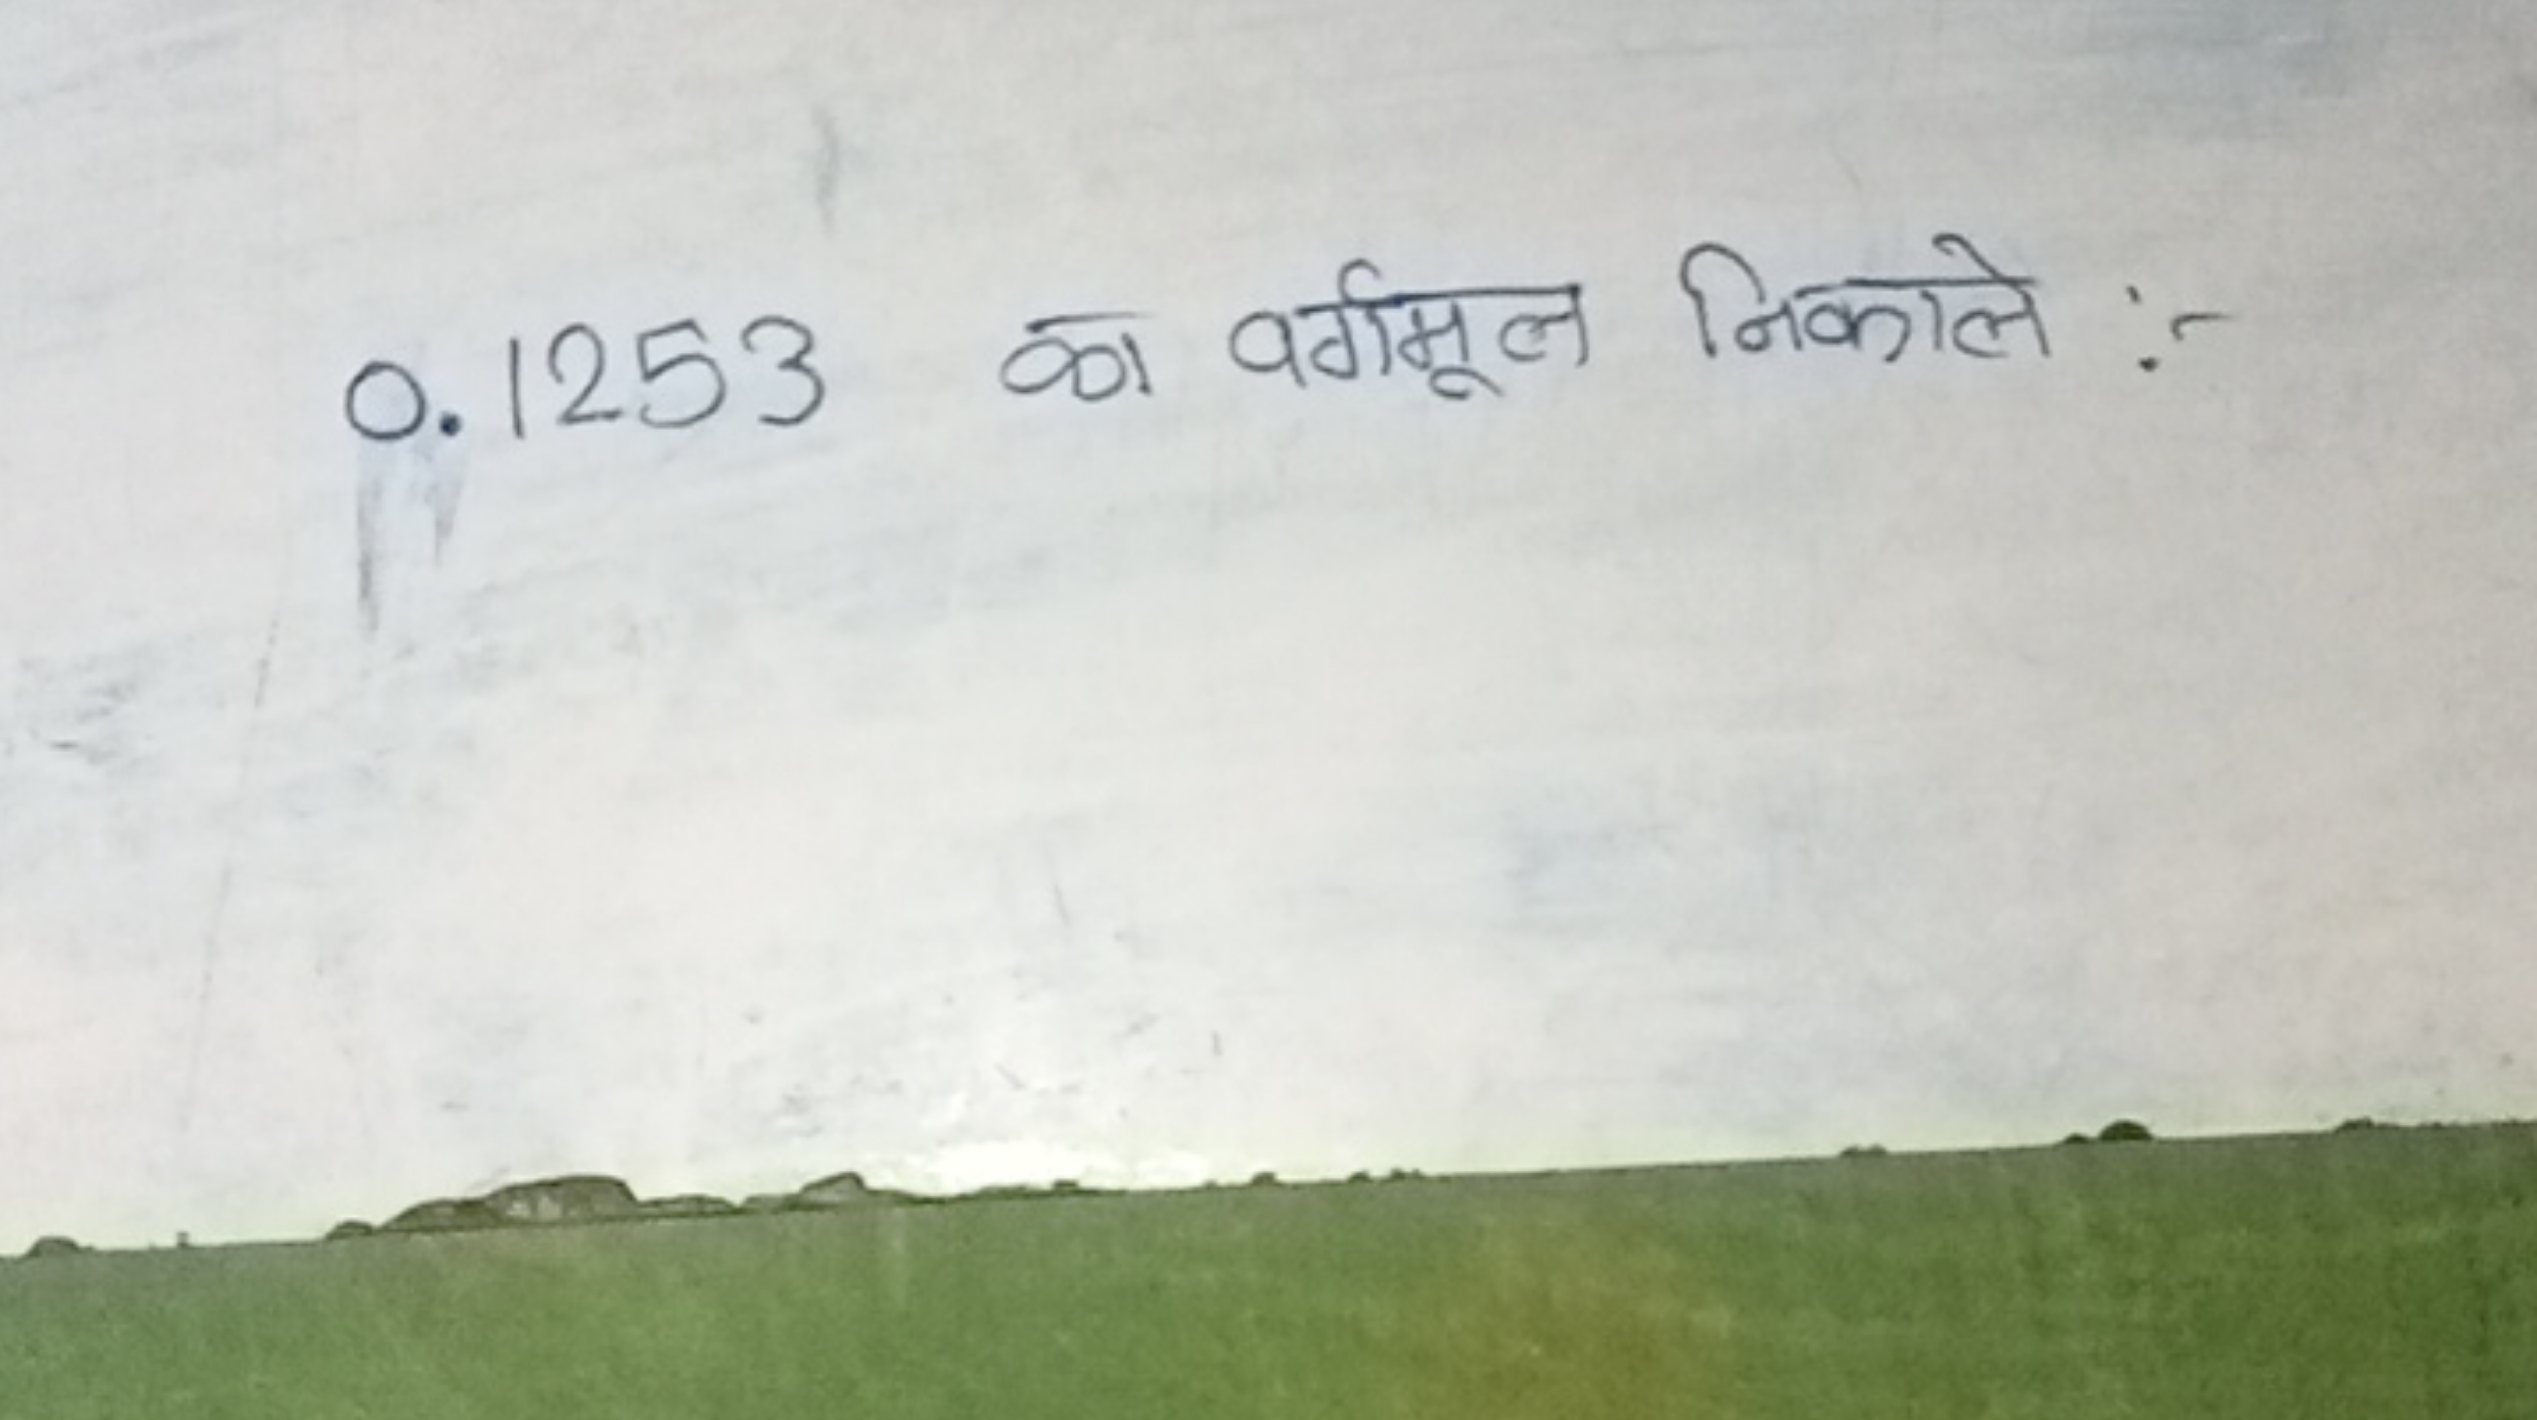 0.1253 का वर्गमूल निकाले :-